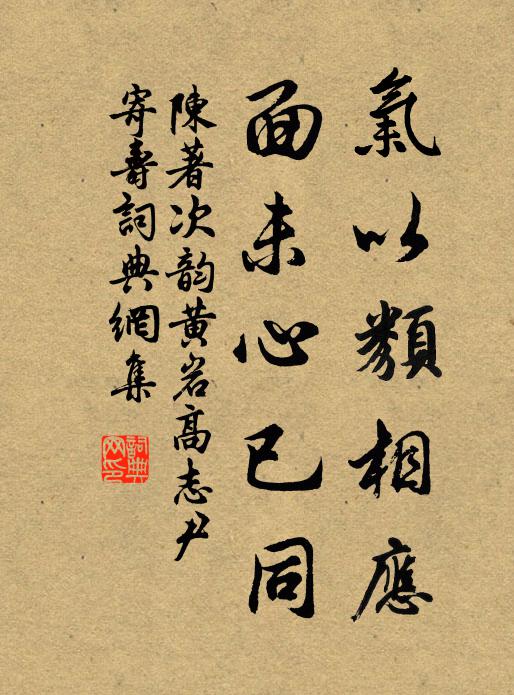 氣以類相應
面未心已同
陳著次韵黃岩高志尹
寄壽詞典網集
詞典
网印